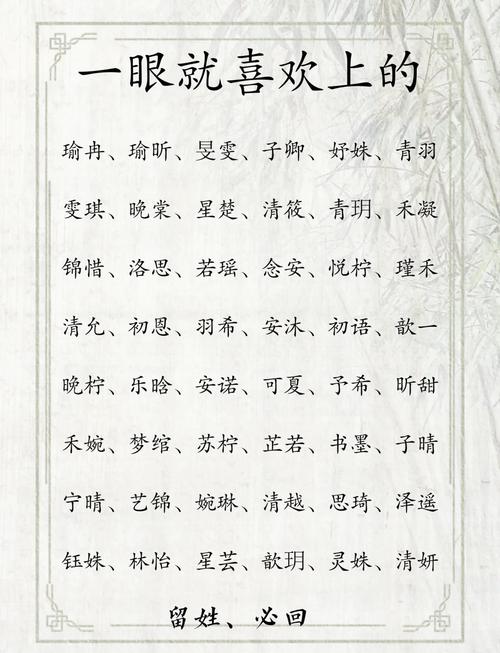 一眼就喜欢上的
瑜冉、瑜昕、旻雯、子卿、妤姝、青羽
雯琪、晚棠、星楚、清筱、青玥、禾凝
锦惜、洛思、若瑶、念安、悦柠、瑾禾
清允、初恩、羽希、安沐、初语、歆一
晚柠、乐晗、安诺、可夏、予希、昕甜
禾婉、梦绾、苏柠、芷若、书墨、子晴
宁晴、艺锦、婉琳、清越、思琦、泽遥
钰姝、林怡、星芸、歆玥、灵姝、清妍
留姓、必回